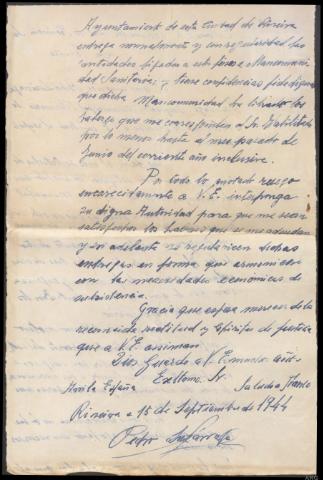 Ayuntamiento de esta Ciudad de Riveira
entrega mensualmente y con regularidad las
cantidades fijadas a esta forosa Mancomuni
dad Sanitaria; y tiene confidencias fidedignas
que dicha Mancomunidad ha librado los
haberes que me corresponden al Sr. Habilitado
por lo menos hasta el mes pasado de
Junio del corriente año inclusive.
Por todo lo anotado ruego
encarecidamente a V.E. interponga
su digna Autoridad para que me sean
satisfechos los haberes que se me adeudan
y en adelante se regularicen dichas
entregas en forma que armonicen
con las necesidades económicas de
subsistencia.
Gracia que espera merecer de la
reconocida rectitud y espíritu de justicia
que a V.E. asisman
Dios Guarde a V.E. muchos años
Arriba España Exctmo. Sr. Saludo a Franco
Riveira a 15 de Septiembre de 1944
Pedro